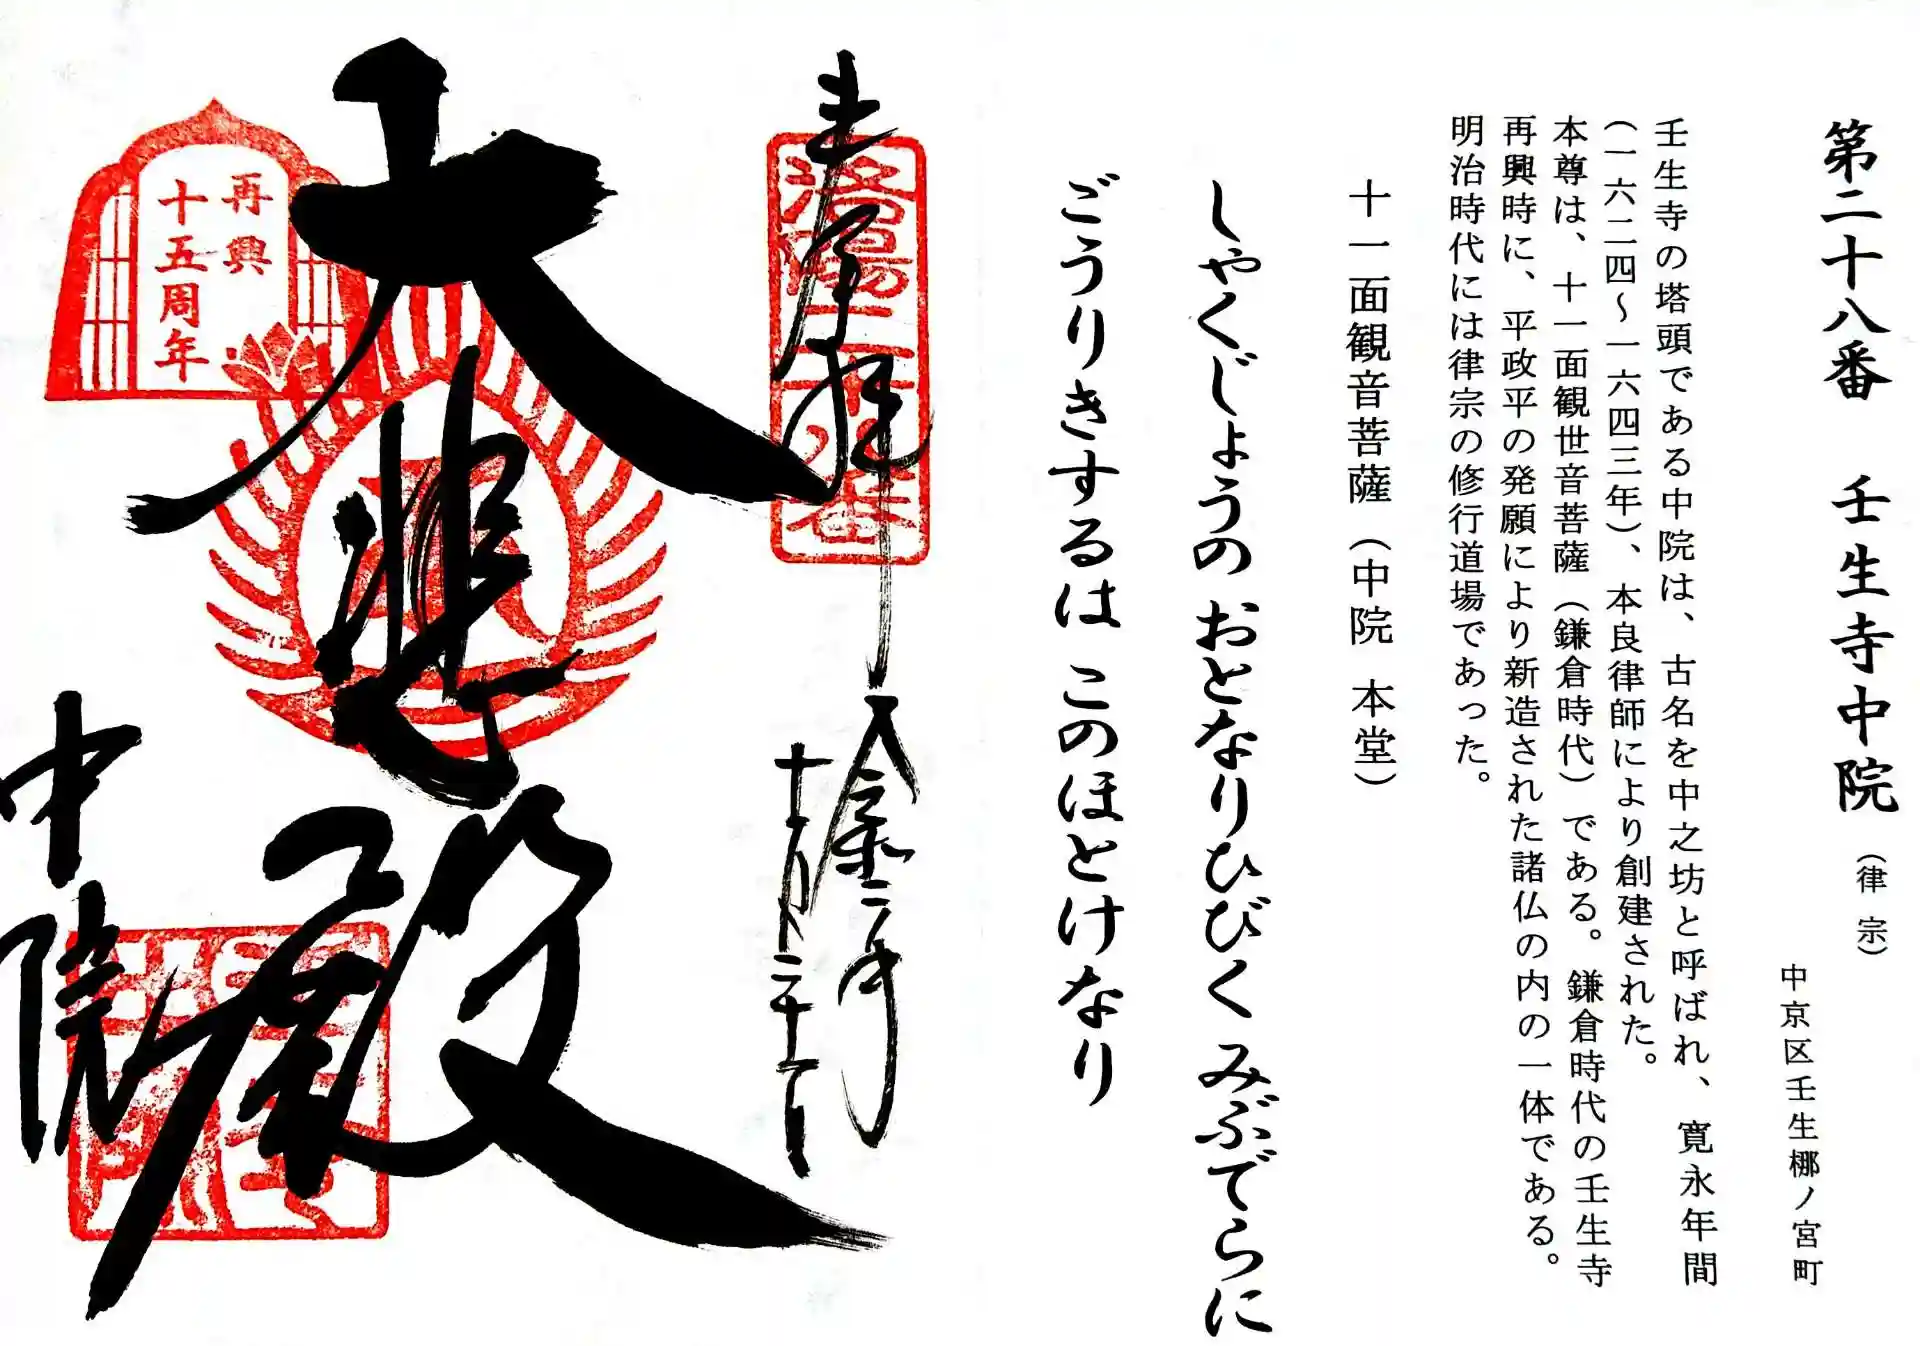 第二十八番　壬生寺中院（律宗）
中京区壬生梛ノ宮町
壬生寺の塔頭である中院は、古名を中之坊と呼ばれ、寛永年間
（一六二四～一六四三年）、本良律師により創建された。
本尊は、十一面観世音菩薩（鎌倉時代）である。鎌倉時代の壬生寺
再興時に、平政平の発願により新造された諸仏の内の一体である。
明治時代には律宗の修行道場であった。
十一面観音菩薩（中院 本堂）
しゃくじょうの おとなりひびく みぶでらに
ごうりきするは このほとけなり
奉拝
洛陽二十八番
令和二年
十一月二十一日
大悲殿
再興
十五周年
中院